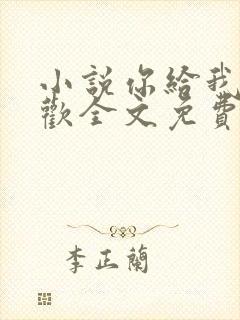 小說你給我
歡全文免費
李正蘭